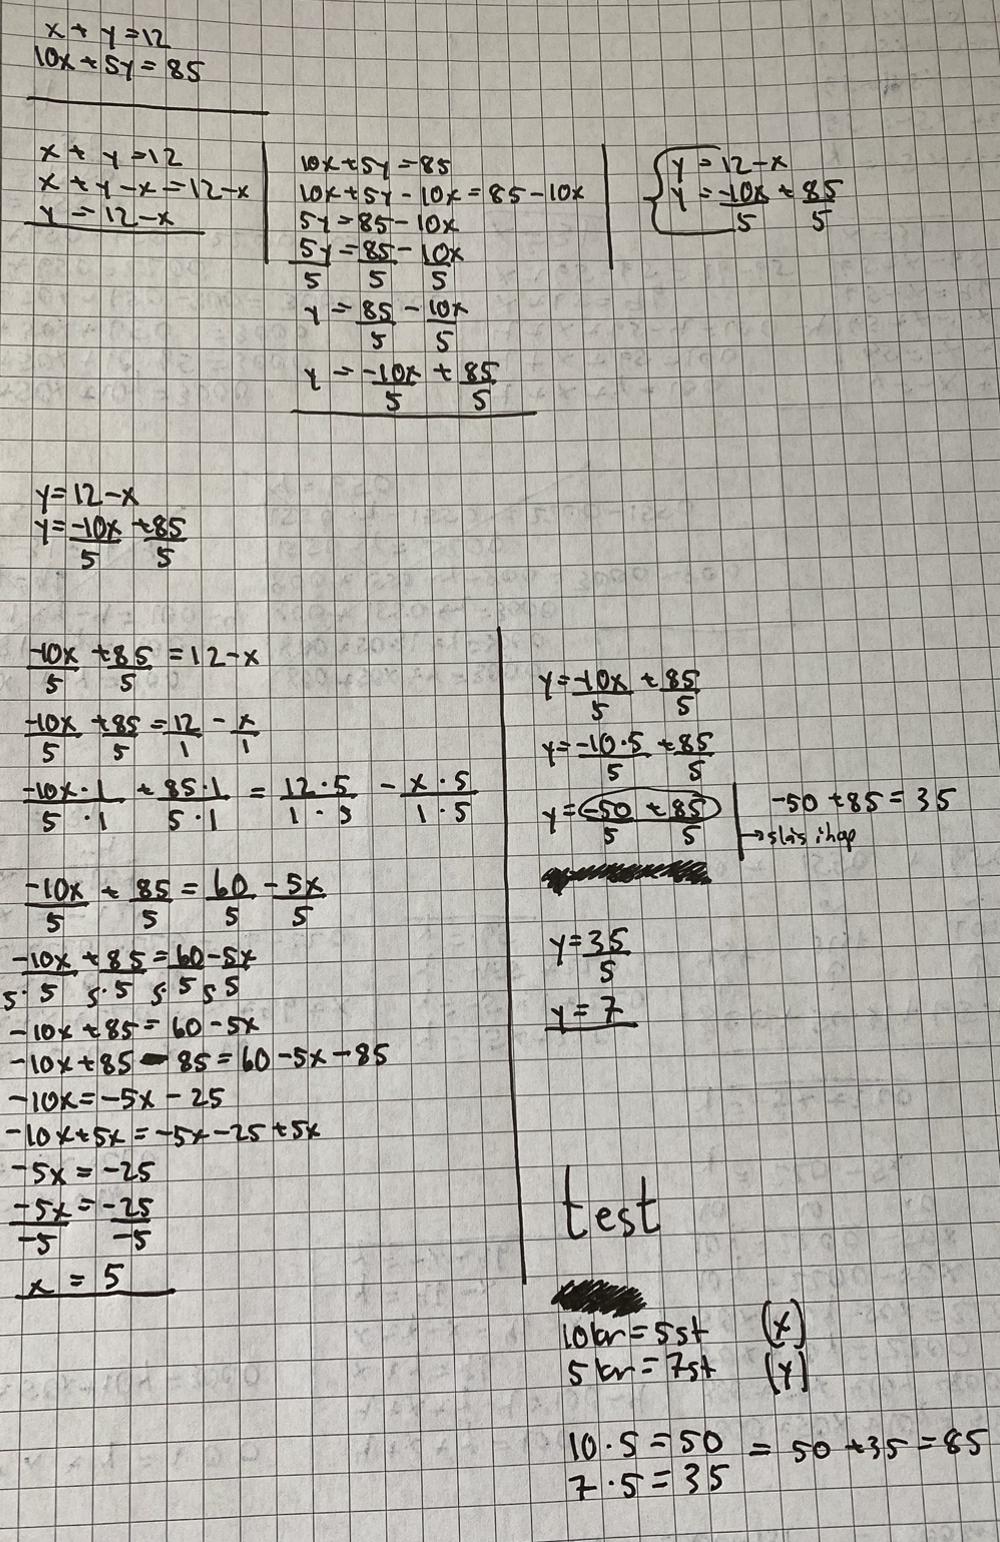 x + y = 12
10x + 5y = 85
x + y = 12
x + y - x = 12 - x
y = 12 - x
10x + 5y = 85
10x + 5y - 10x = 85 - 10x
5y = 85 - 10x
5y/5 = 85/5 - 10x/5
y = 85/5 - 10x/5
y = -10x/5 + 85/5
{ y = 12 - x
y = -10x/5 + 85/5
y = 12 - x
y = -10x/5 + 85/5
-10x/5 + 85/5 = 12 - x
-10x/5 + 85/5 = 12/1 - x/1
-10x·1/5·1 + 85·1/5·1 = 12·5/1·5 - x·5/1·5
-10x/5 + 85/5 = 60/5 - 5x/5
5· -10x/5 + 5· 85/5 = 5· 60/5 - 5 5x/5
-10x + 85 = 60 - 5x
-10x + 85 - 85 = 60 - 5x - 85
-10x = -5x - 25
-10x + 5x = -5x - 25 + 5x
-5x = -25
-5x/-5 = -25/-5
x = 5
y = -10x/5 + 85/5
y = -10·5/5 + 85/5
y = -50/5 + 85/5
-50 + 85 = 35
→ slås ihop
y = 35/5
y = 7
test
10kr = 5st (x)
5kr = 7st (y)
10·5 = 50 = 50 + 35 = 85
7·5 = 35